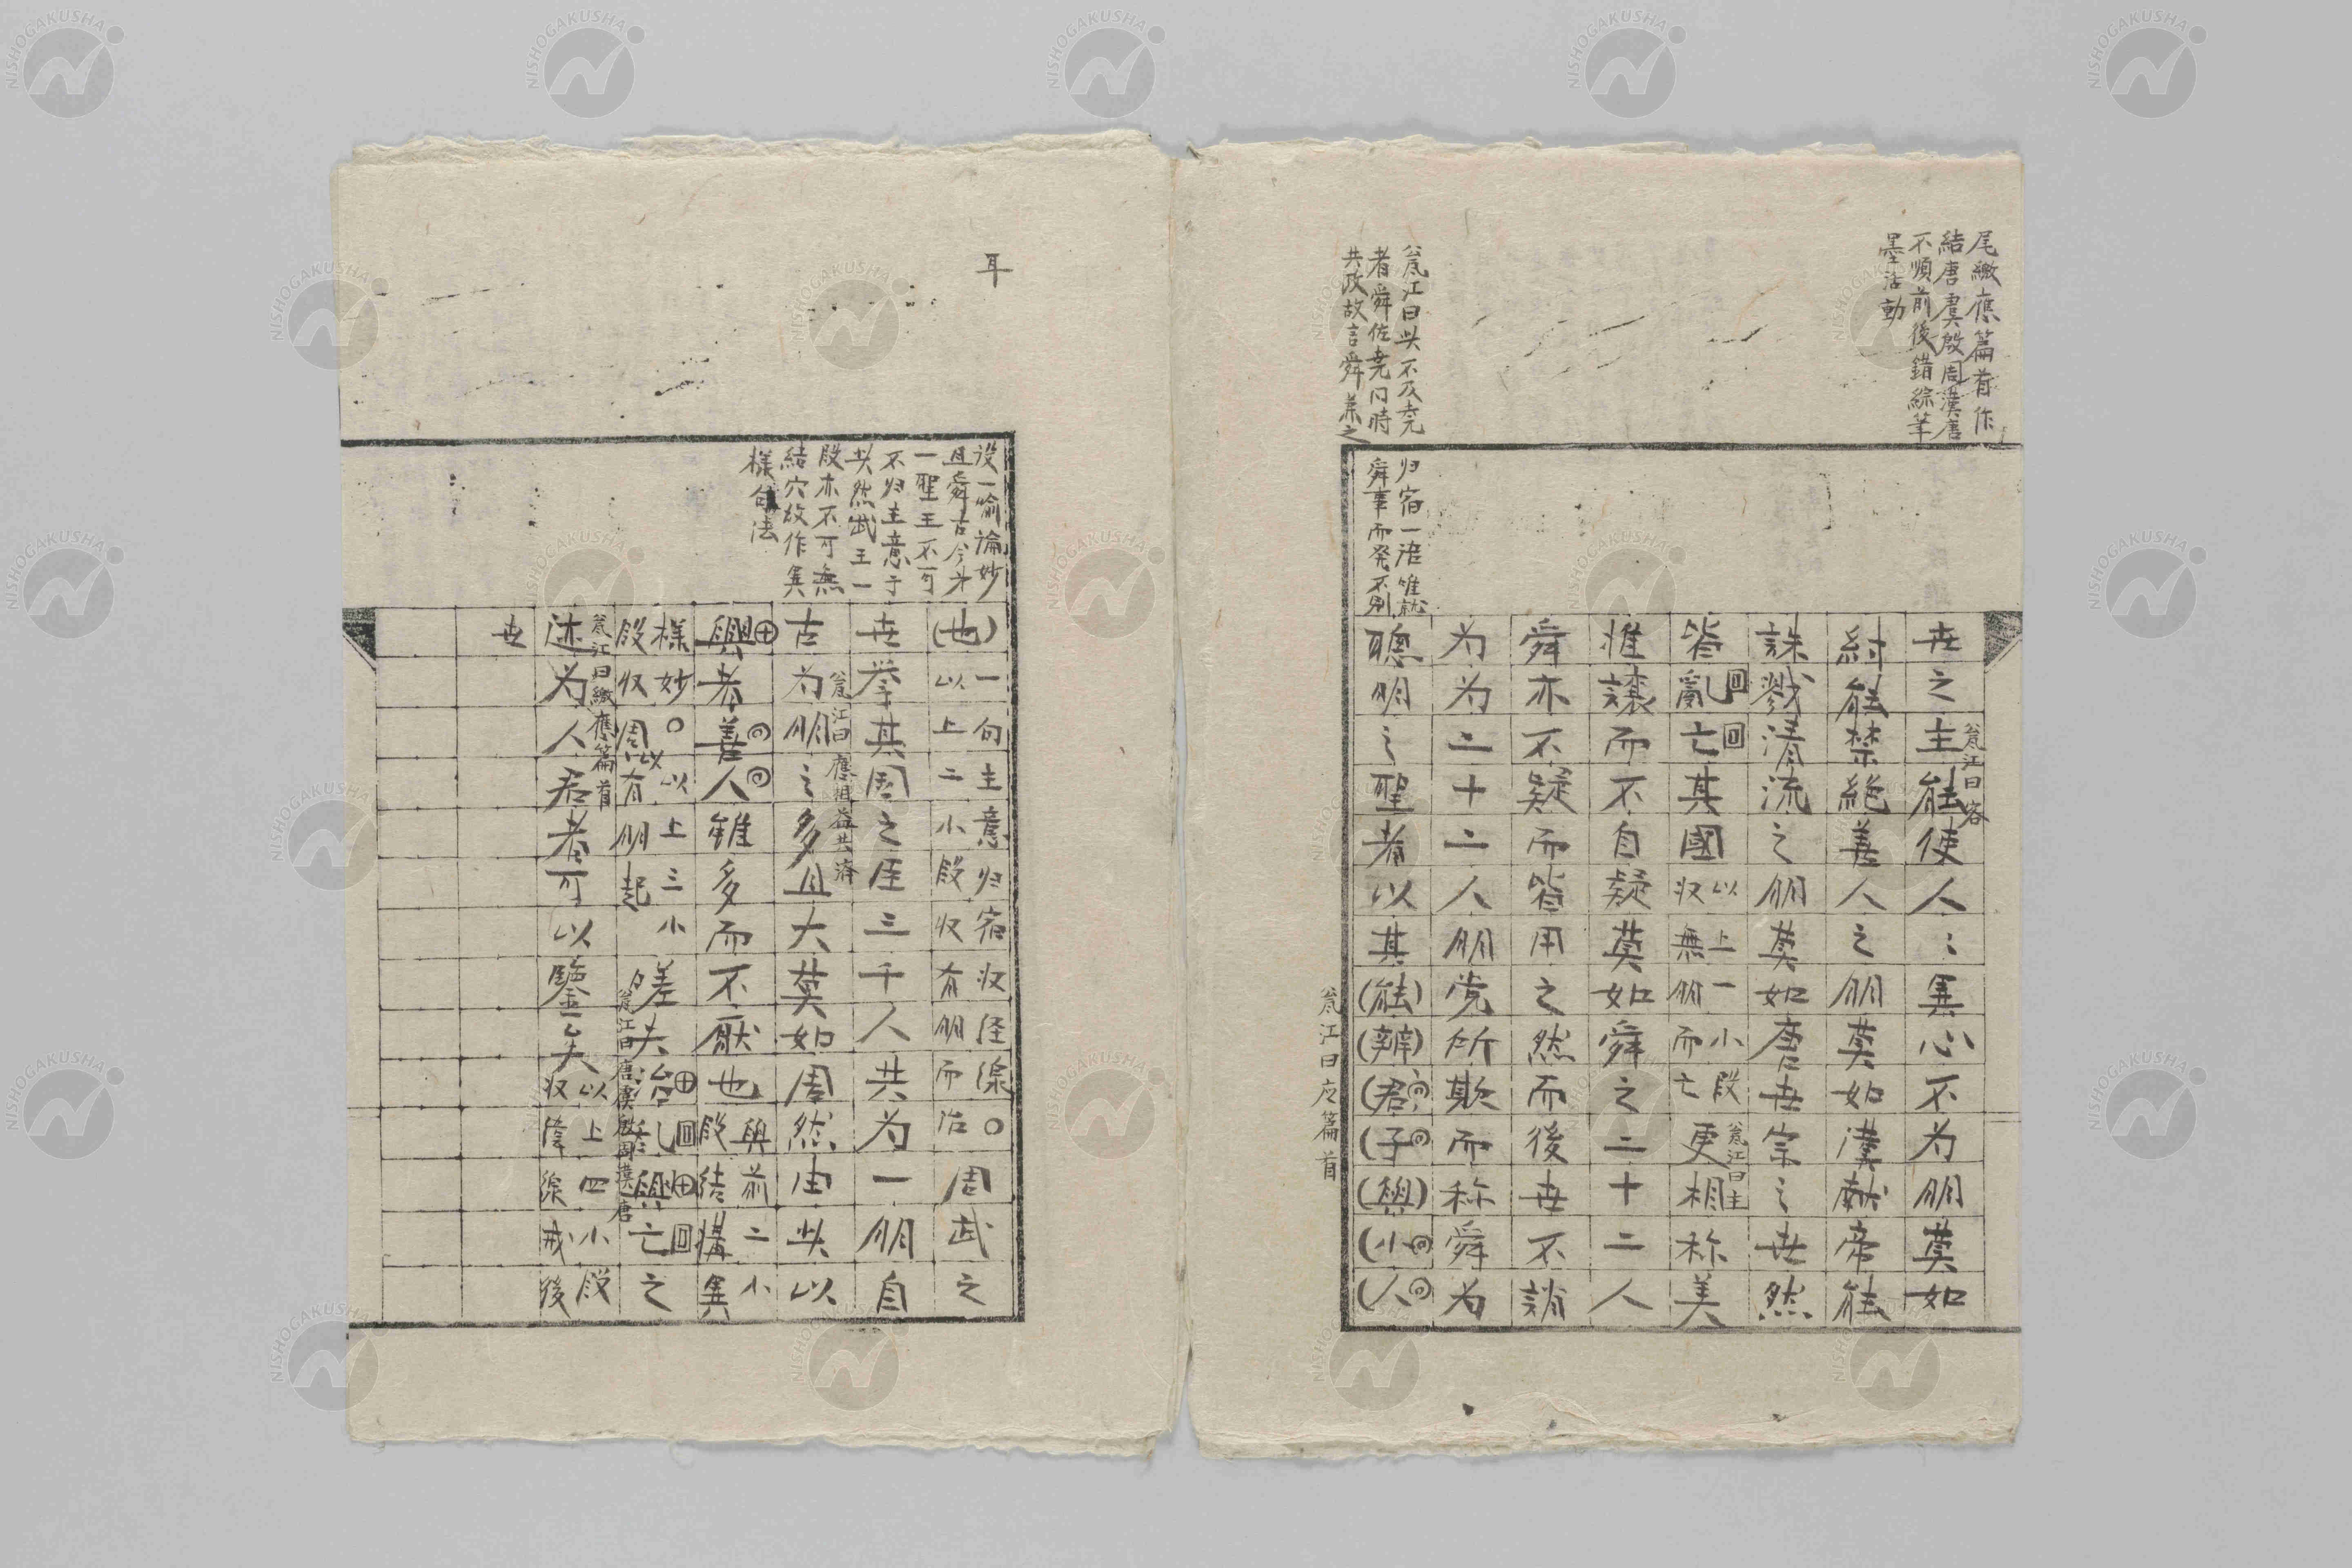 尾繳應篇首作
結唐虞殷周漢唐
不順前後錯綜筆
墨活動
瓮江曰此不及堯
者舜佐堯同時
共政故言舜兼之
归宿一语雖就
舜事而発不則
世之主能使人〻異心不为朋莫如
瓮江曰客
紂能禁絶善人之朋莫如漢献帝能
誅戮清流之朋莫如唐世宗之世然
皆亂亡其國
以上一小段
収無朋而亡
更相称美
瓮江曰主
推譲而不自疑莫如舜之二十二人
舜亦不疑而皆用之然而後世不誚
为为二十二人朋党所欺而称舜为
聰明之聖者以其(能)(辨)(君)(子)(與)(小)(人)
瓮江曰应篇首
耳
设一喻論妙
且舜古今才
一聖王不可
不归主意于
此然武王一
段亦不可無
結穴故作異
樣句法
(也)
一句主意归宿収径線○
以上二小段収有朋而治
周武之
世挙其國之臣三千人共为一朋自
古为朋之多且大莫如周然由此以
瓮江曰應相益共済
興者善人雖多而不厭也
與前二小
段結構異
樣妙○以上三小
段収周以有朋起
嗟夫治乱興亡之
瓮江曰唐虞殷周漢唐
瓮江曰繳應篇首
迹为人君者可以鑒矣
以上四小段
収僃線戒後
世
NISHOGAKUSHA